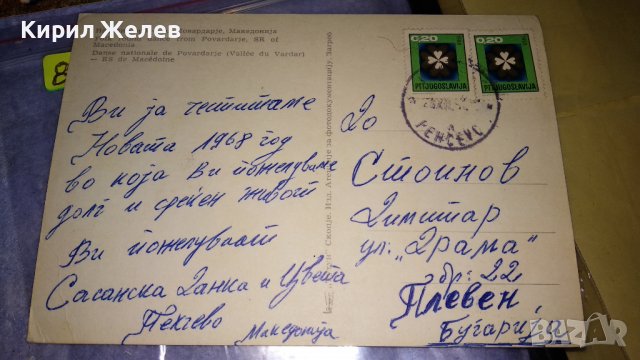 Кирил Желев
Повардарје, Македонија
from Povardarje, SR of
Macedonia
Danse nationale de Povardarje (Vallée du Vardar)
— RS de Macédoine
8
0,20
0,20
PTT JUGOSLAVIJA
PTT JUGOSLAVIJA
Ви ја честитаме
Новата 1968 год
во која Ви пожелуваме
долг и среќен живот
Ви пожелуваат
Сасанска Данка и Цвета
Пехчево Македонија
Скопје. Изд. за фотодокументацију. Загреб
До
Стоинов
Димитар
ул. „Драма"
бр. 22
Плевен,
Бугарија
BAZAR